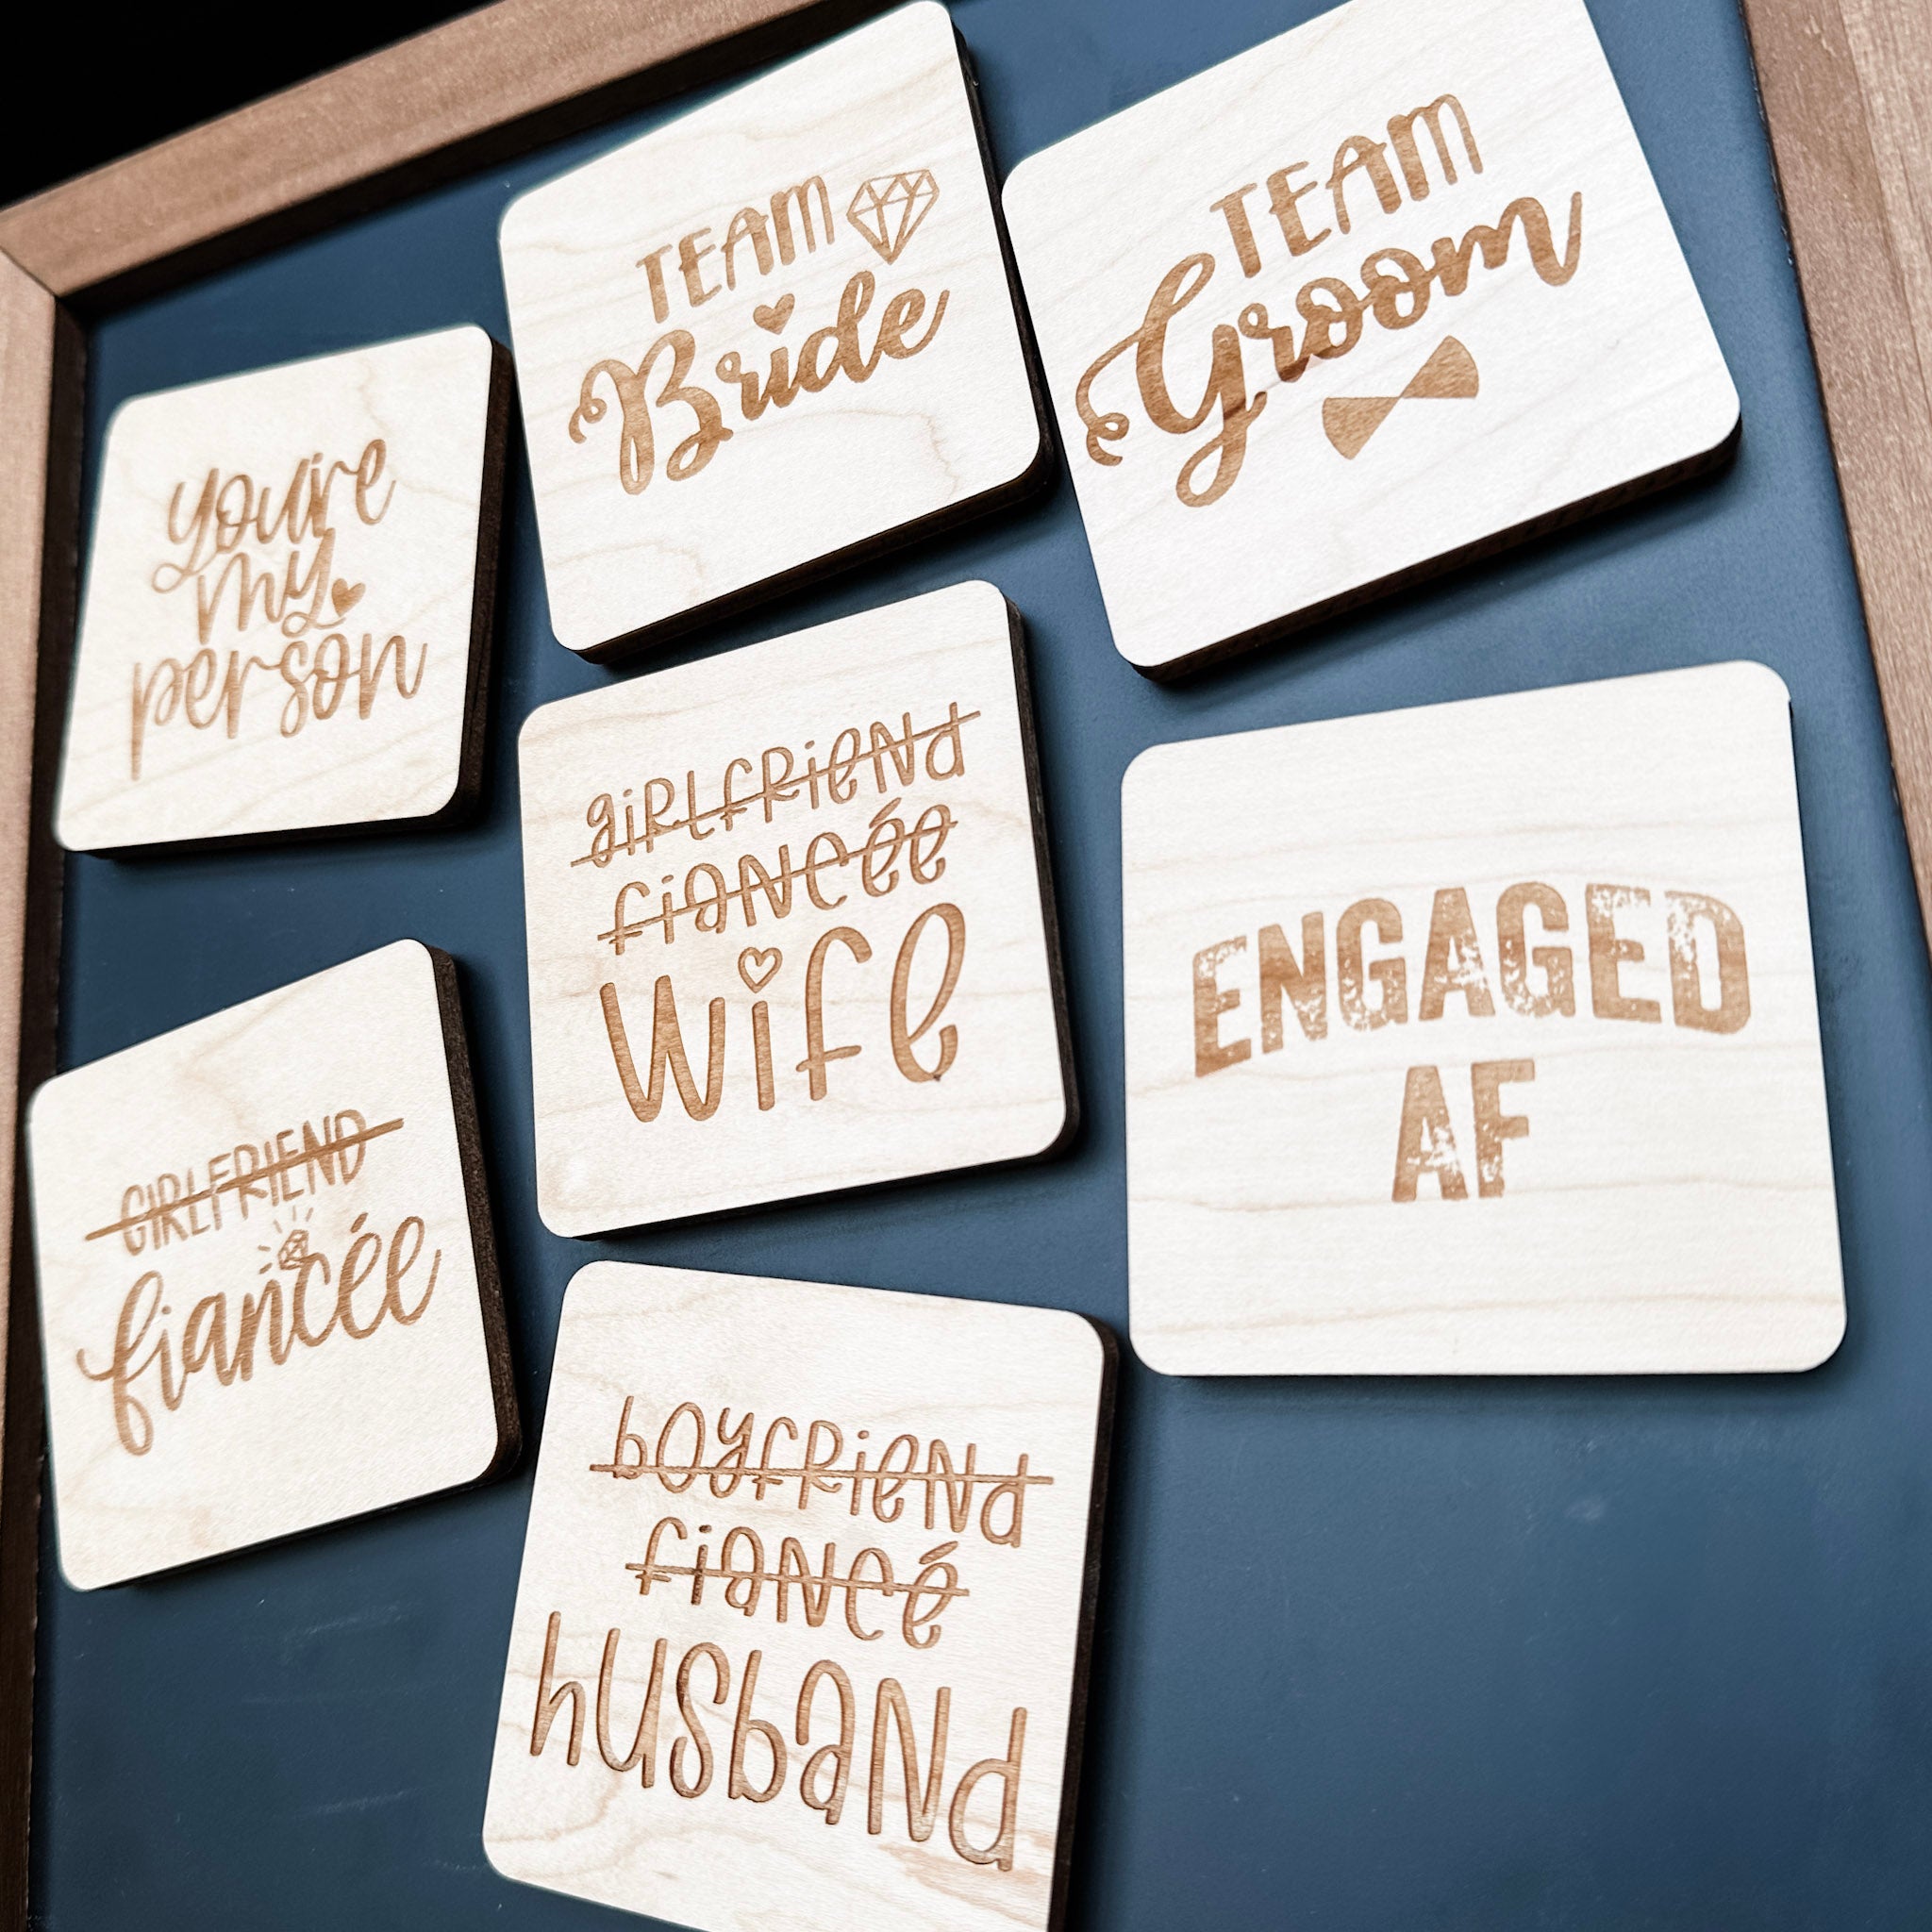 you're
my
person
TEAM
Bride
TEAM
Groom
GiRLFRiENd
fiANCée
Wife
ENGAGED
AF
GIRLFRIEND
fiancée
bOyfRieNd
fiANCé
husbaNd